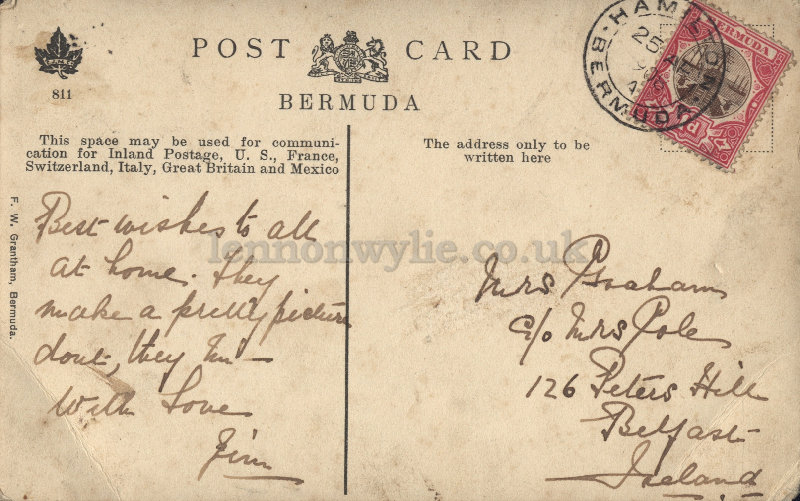 POST CARD
BERMUDA
811
This space may be used for communi-
cation for Inland Postage, U. S., France,
Switzerland, Italy, Great Britain and Mexico
The address only to be
written here
F. W. Grantham, Bermuda.
HAMILTON
BERMUDA
25
BERMUDA
Best wishes to all
at home. They
make a pretty picture
dont, they
With Love
Jim
Mrs Graham
c/o Mrs Pole
126 Peters Hill
Belfast
Ireland
lennonwylie.co.uk